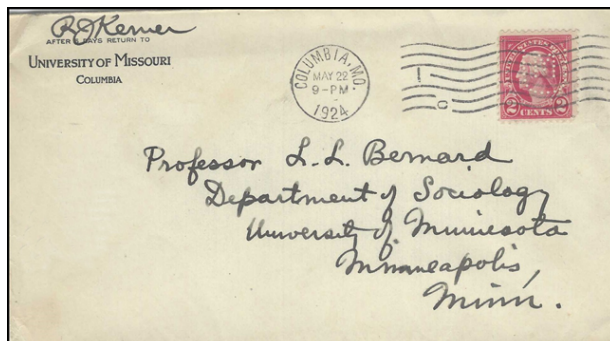 R J Kerner
AFTER 5 DAYS RETURN TO
UNIVERSITY OF MISSOURI
COLUMBIA
COLUMBIA, MO.
MAY 22
9-PM
1924
UNITED STATES POSTAGE
2 CENTS 2
Professor L. L. Bernard
Department of Sociology
University of Minnesota
Minneapolis,
Minn.